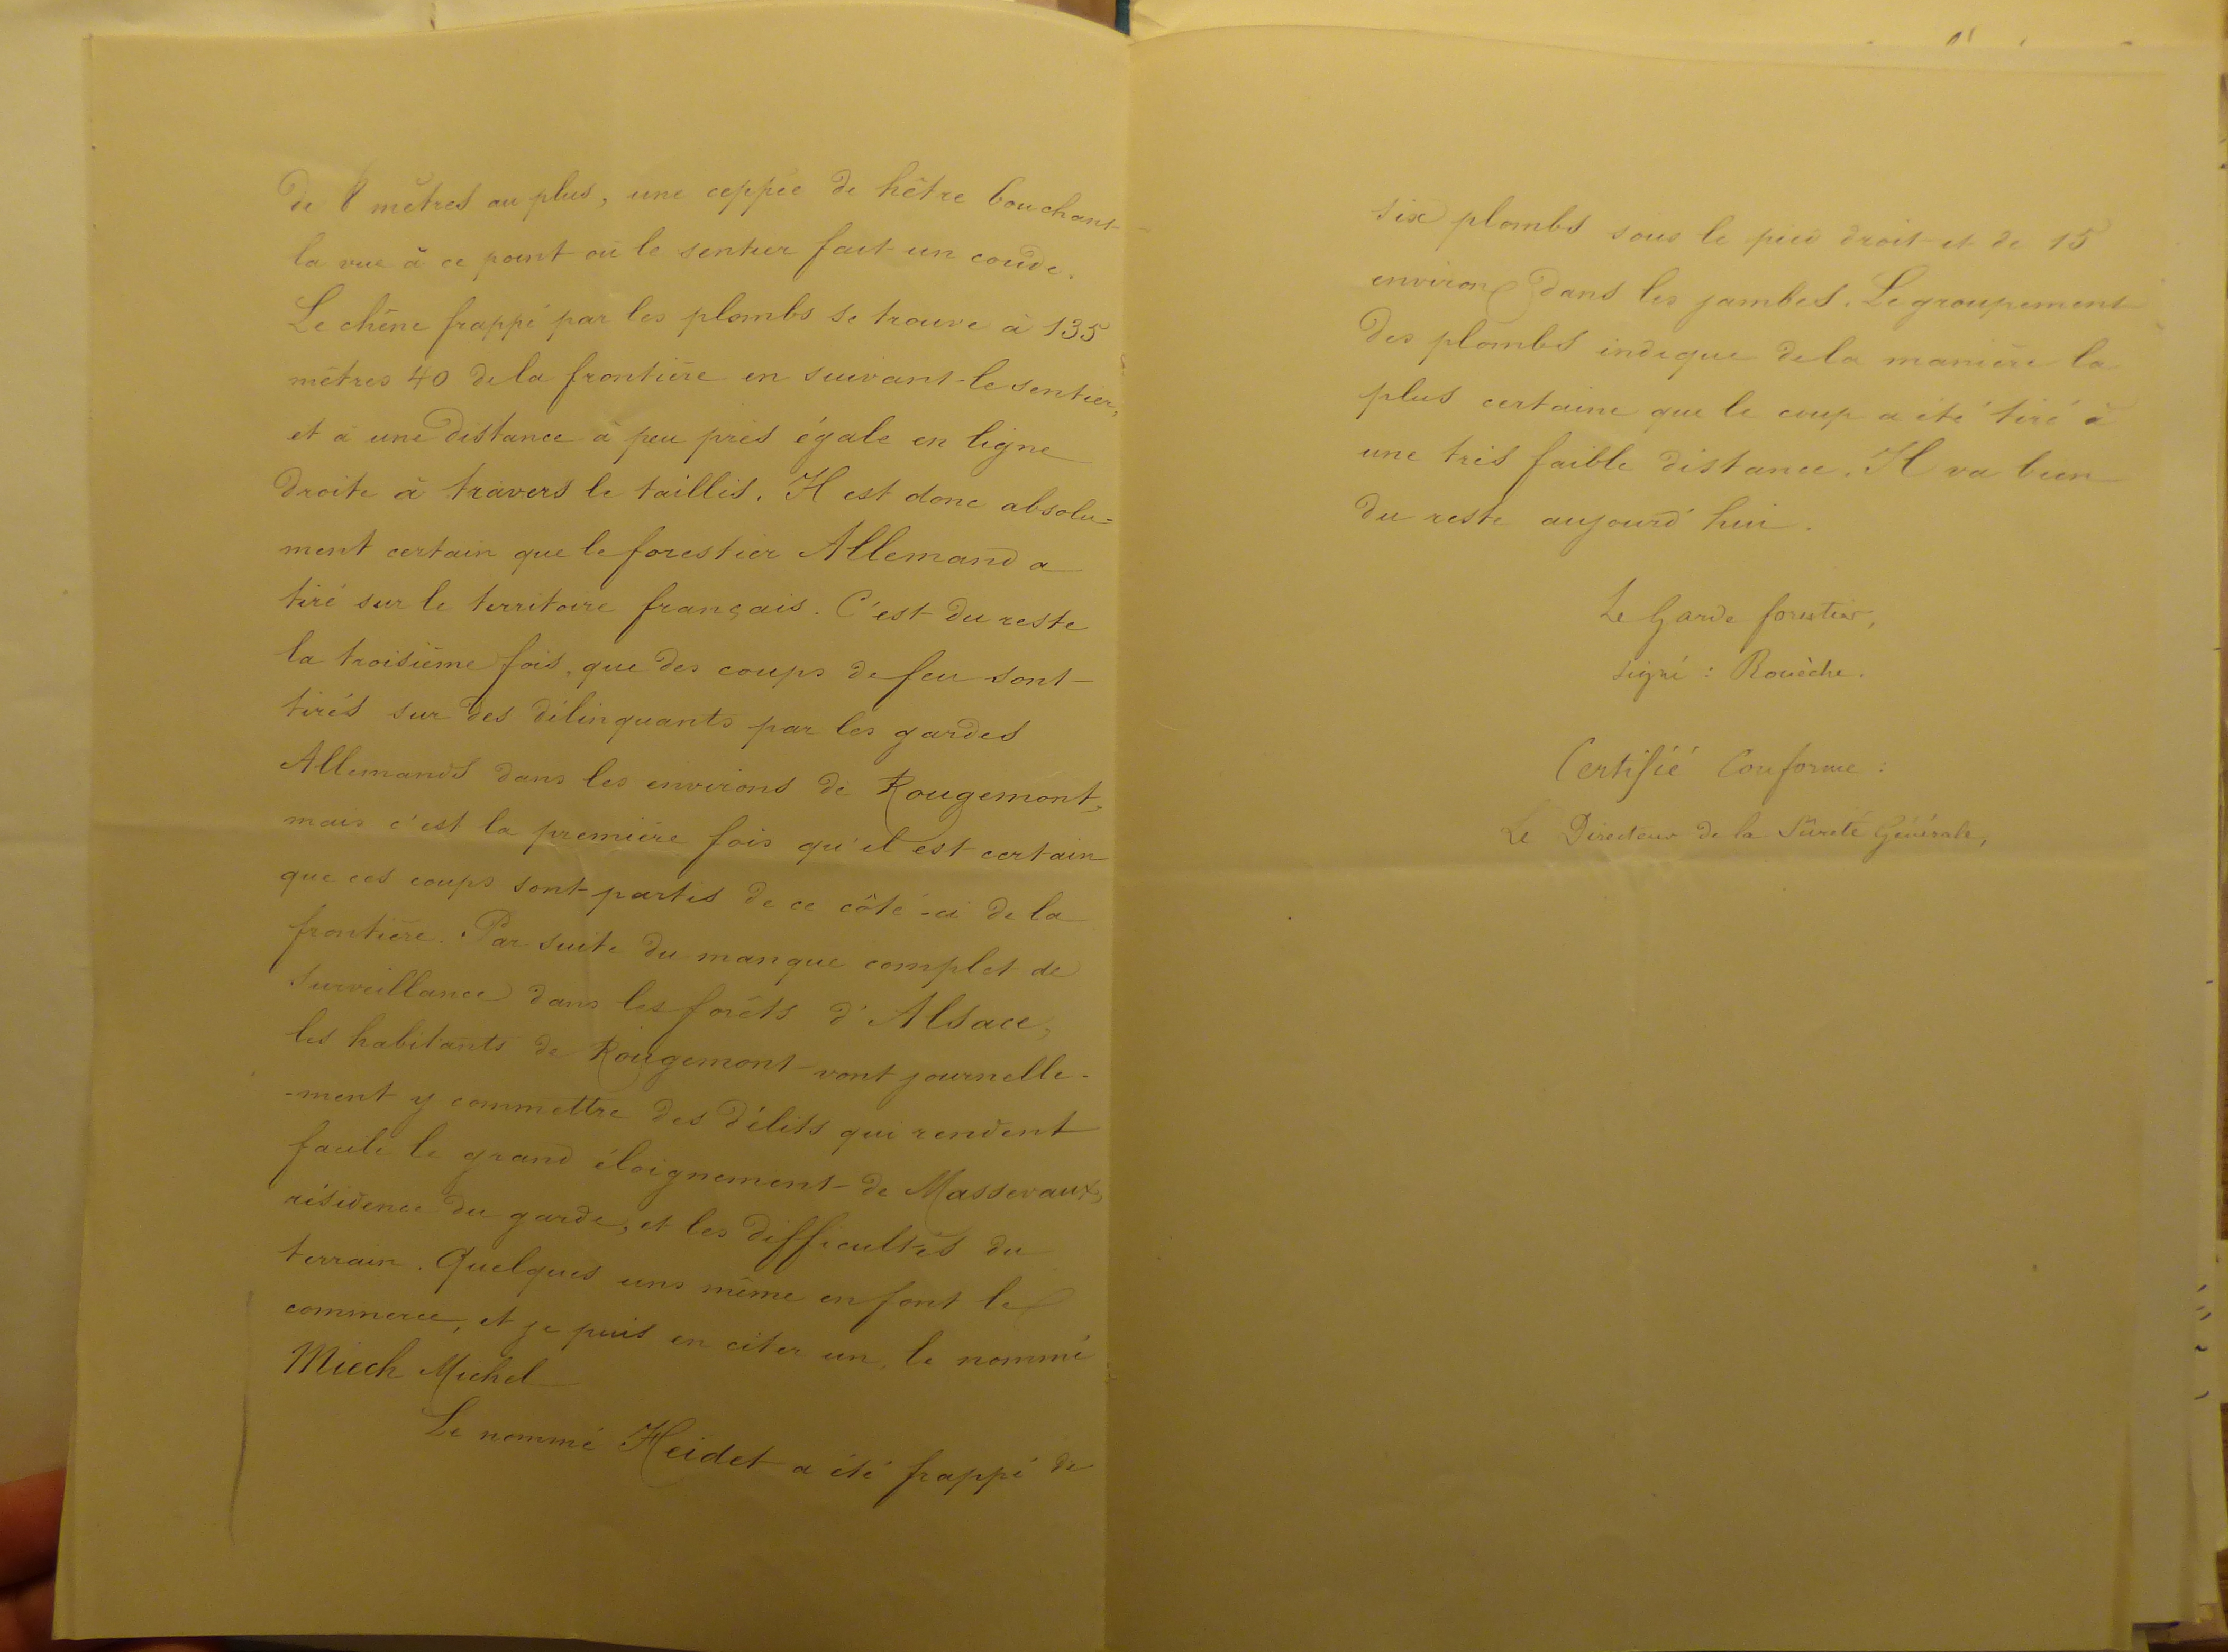 de 8 mètres au plus, une ceppée de hêtre bouchant
la vue à ce point où le sentier fait un coude.
Le chêne frappé par les plombs se trouve à 135
mètres 40 de la frontière en suivant le sentier,
et à une distance à peu près égale en ligne
droite à travers le taillis. Il est donc absolu-
ment certain que le forestier Allemand a
tiré sur le territoire français. C'est du reste
la troisième fois, que des coups de feu sont
tirés sur des délinquants par les gardes
Allemands dans les environs de Rougemont,
mais c'est la première fois qu'il est certain
que ces coups sont partis de ce côté-ci de la
frontière. Par suite du manque complet de
surveillance dans les forêts d'Alsace,
les habitants de Rougemont vont journelle-
-ment y commettre des délits qui rendent
facile le grand éloignement de Massevaux,
résidence du garde, et les difficultés du
terrain. Quelques uns même en font le
commerce, et je puis en citer un, le nommé
Miech Michel
Le nommé Heidet a été frappé de
six plombs sous le pied droit et de 15
environ dans les jambes. Le groupement
des plombs indique de la manière la
plus certaine que le coup a été tiré à
une très faible distance. Il va bien
du reste aujourd'hui.
Le Garde forestier,
signé : Rouèche.
Certifié Conforme :
Le Directeur de la Sûreté Générale,